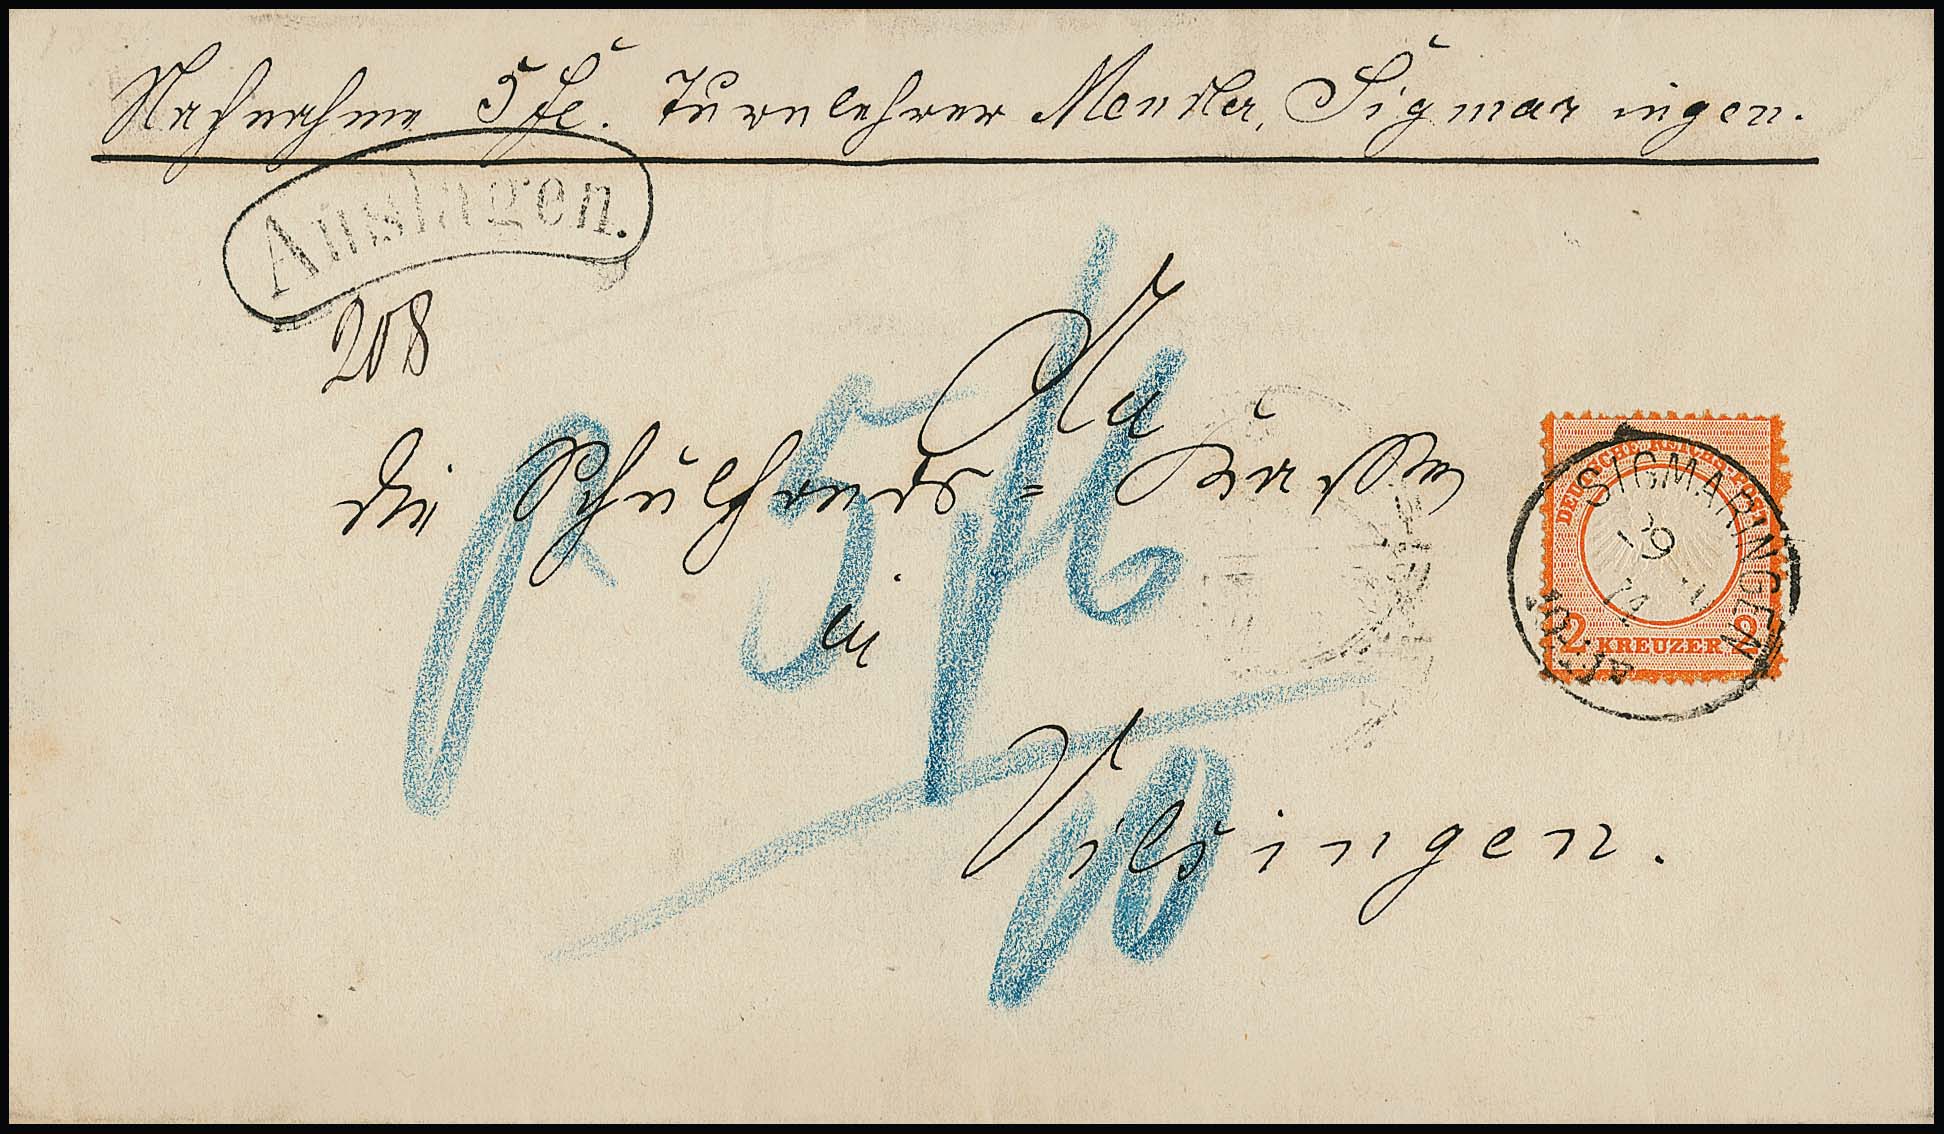 Nachnahme 5 fl. Turnlehrer Mendler, Sigmaringen.
Auslagen.
208
An
die Schulfonds-Kasse
in
Vilsingen.
5/6
10
DEUTSCHE REICHS-POST
2 KREUZER 2
SIGMARINGEN
19
74